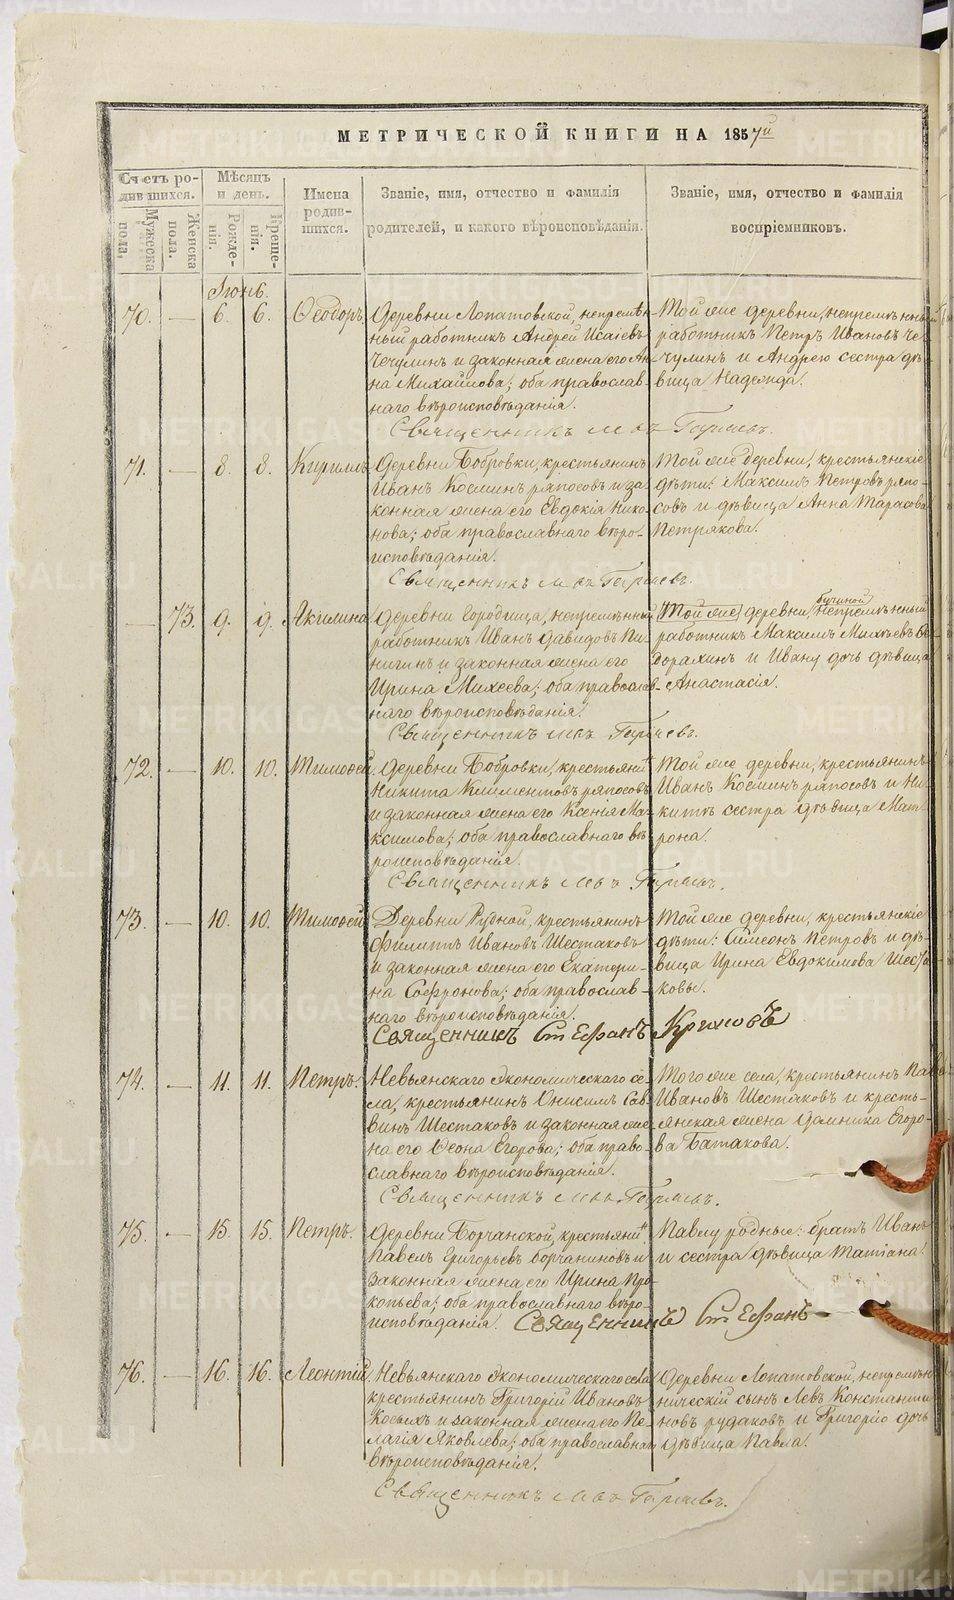 МЕТРИЧЕСКОЙ КНИГИ НА 1857й
Счетъ родившихся.
Мужеска пола.
Женска пола.
Мѣсяцъ и день.
Рожденія.
Крещенія.
Имена родившихся.
Званіе, имя, отчество и фамилія
родителей, и какого вѣроисповѣданія.
Званіе, имя, отчество и фамилія
воспріемниковъ.
Іюнь.
70. — 6. 6. Ѳеодоръ.
Деревни Лопатовской, непремѣн-
ный работникъ Андрей Исаіевъ
Чечулинъ и законная жена его Ан-
на Михайлова; оба православ-
наго вѣроисповѣданія.
Той же деревни, непремѣнный
работникъ Петръ Ивановъ Че-
чулинъ и Андрею сестра дѣ-
вица Надежда.
Священникъ
71. — 8. 8. Кириллъ
Деревни Бобровки, крестьянинъ
Иванъ Косминъ ряпосовъ и за-
конная жена его Евдокія Нико-
нова; оба православнаго вѣро-
исповѣданія.
Той же деревни, крестьянскіе
дѣти: Максимъ Петровъ ряпо-
совъ и дѣвица Анна Тарасова
Петрякова.
Священникъ
— 73. 9. 9. Акилина
Деревни Городища, непремѣнный
работникъ Иванъ Давидовъ Пи-
нигинъ и законная жена его
Ирина Михеева; оба православ-
наго вѣроисповѣданія.
Той же деревни, Непремѣнный
работникъ Максимъ
и Ивану дочь дѣвица
Анастасія.
Священникъ
72. — 10. 10. Тимоѳей.
Деревни Бобровки, крестьянинъ
Никита Климентовъ ряпосовъ
и законная жена его Ксенія Ма-
ксимова; оба православнаго вѣ-
роисповѣданія.
Той же деревни, крестьянинъ
Иванъ Косминъ ряпосовъ и Ни-
китѣ сестра дѣвица Мат-
рона.
Священникъ
73. — 10. 10. Тимоѳей
Деревни Рудной, крестьянинъ
Филиппъ Ивановъ Шестаковъ
и законная жена его Екатери-
на Софронова; оба православ-
наго вѣроисповѣданія.
Той же деревни, крестьянскіе
дѣти: Симеонъ Петровъ и дѣ-
вица Ирина Евдокимова Шеста-
ковы.
Священникъ Стефанъ
74. — 11. 11. Петръ.
Невьянскаго экономическаго се-
ла, крестьянинъ Онисимъ Сав-
винъ Шестаковъ и законная же-
на его Ѳеона Егорова; оба право-
славнаго вѣроисповѣданія.
Того же села, крестьянинъ Павелъ
Ивановъ Шестаковъ и кресть-
янская жена Домника Егоро-
ва Батакова.
Священникъ
75. — 15. 15. Петръ.
Деревни Борчанской, крестьянинъ
Павелъ Григорьевъ Борчаниновъ и
законная жена его Ирина Про-
копьева; оба православнаго вѣро-
исповѣданія.
Павлу родные: братъ Иванъ
и сестра дѣвица Татіана.
Священникъ Стефанъ
76. — 16. 16. Леонтій
Невьянскаго экономическаго села
крестьянинъ Григорій Ивановъ
Косыхъ и законная жена его Пе-
лагія Яковлева; оба православнаго
вѣроисповѣданія.
Деревни Лопатовской, непремѣн-
ническій сынъ Левъ Константи-
новъ рудаковъ и Григорію дочь
дѣвица Павла.
Священникъ
METRIKI.GASO-URAL.RU